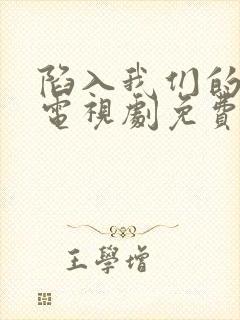 陷入我们的
電視劇免費
王學增